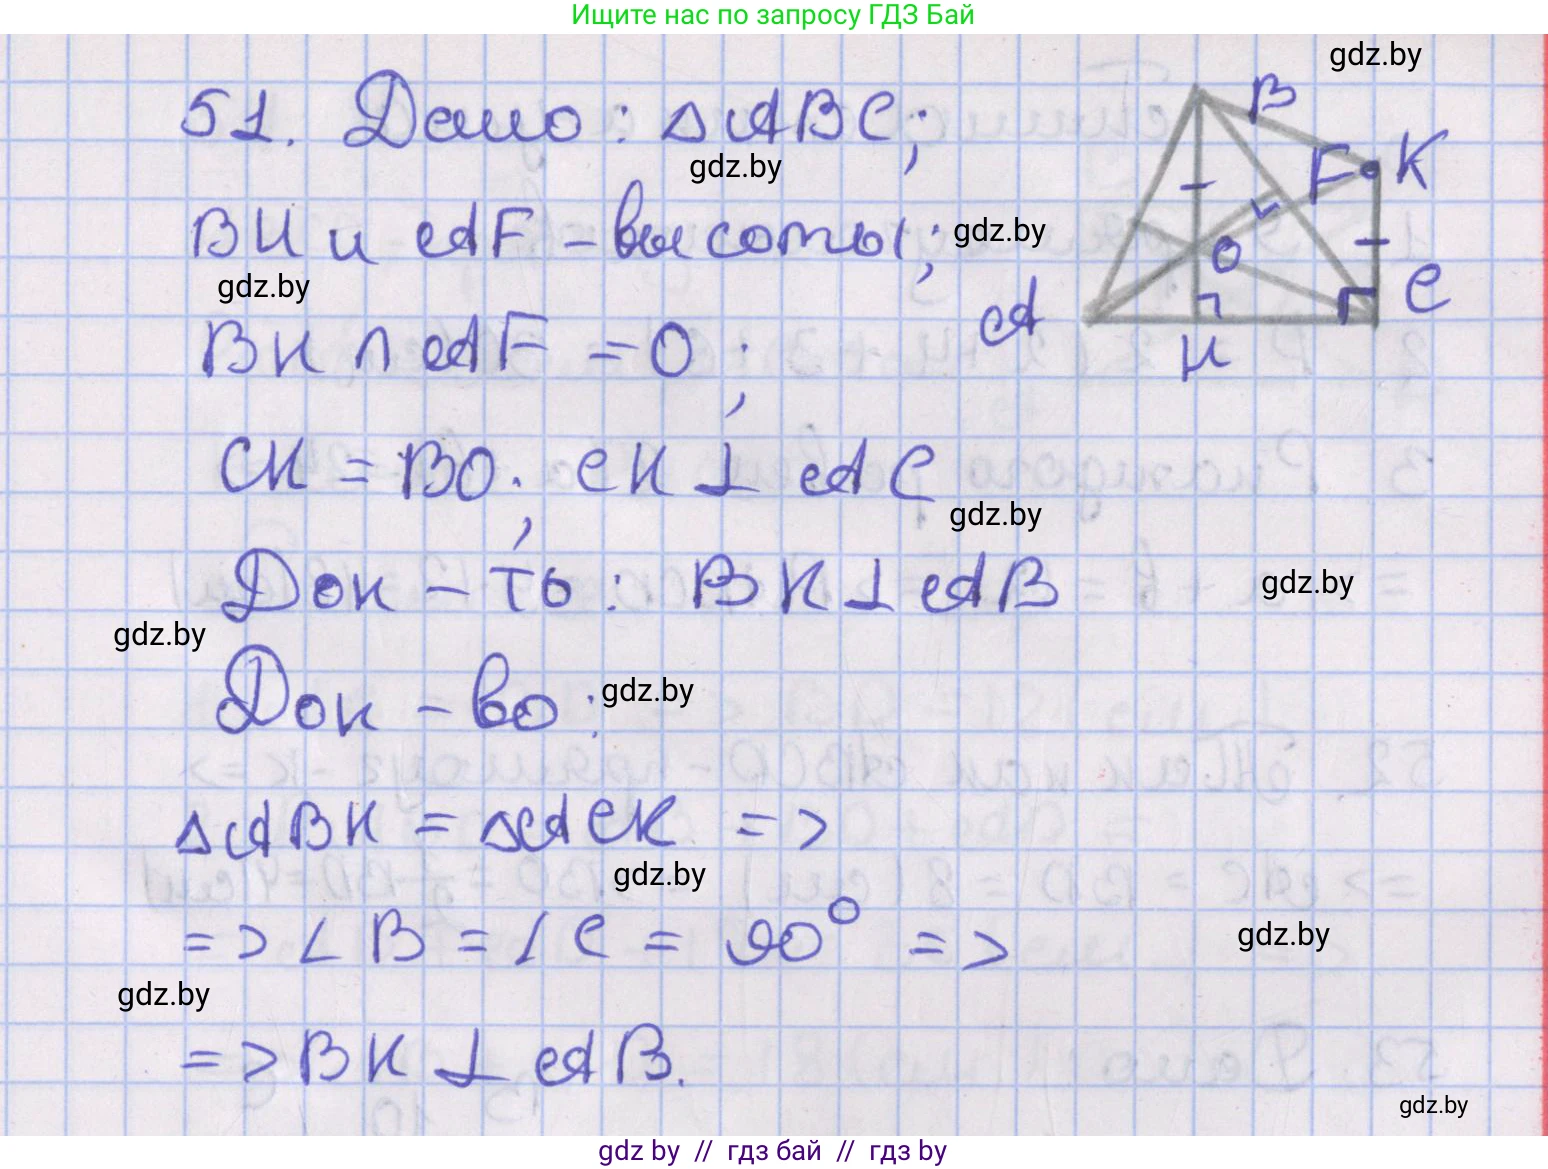 Ищите нас по запросу ГДЗ Бай
gdz.by
51. Дано: △ABC;
gdz.by
B
F
K
BH и AF – высоты;
gdz.by
O
C
gdz.by
A
BH ∩ AF = O;
H
CK = BO; CK ⊥ AC
gdz.by
Док – ть: BK ⊥ AB
gdz.by
gdz.by
Док – во:
gdz.by
△ABK = △ACK =>
gdz.by
=> ∠B = ∠C = 90° =>
gdz.by
gdz.by
=> BK ⊥ AB.
gdz.by
gdz by // гдз бай // гдз by